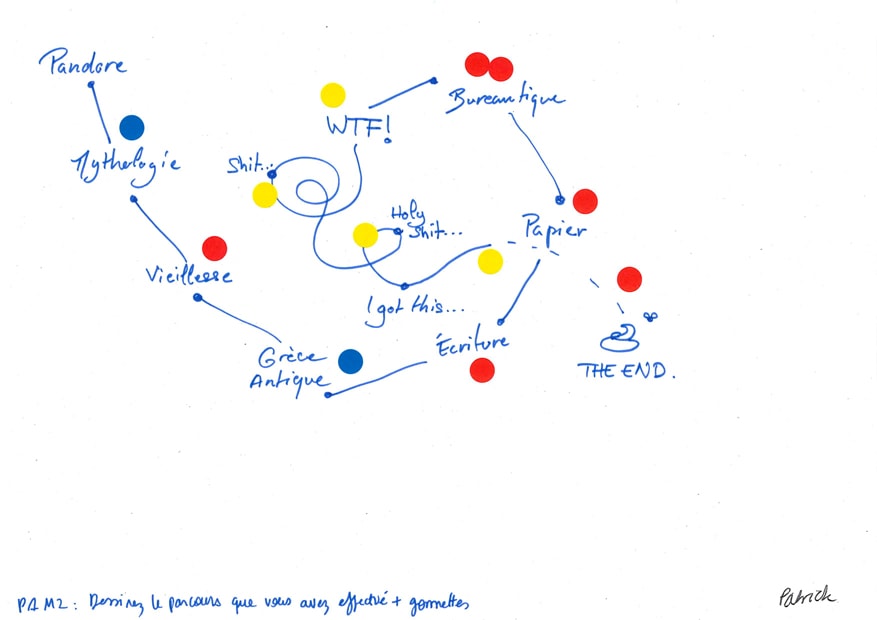 Pandore
Mythologie
Vieillesse
Grèce
Antique
Écriture
Papier
Bureautique
WTF!
Shit...
Holy
Shit...
I got this...
THE END.
PAM2 : Dessinez le parcours que vous avez effectué + gommettes
Patrick